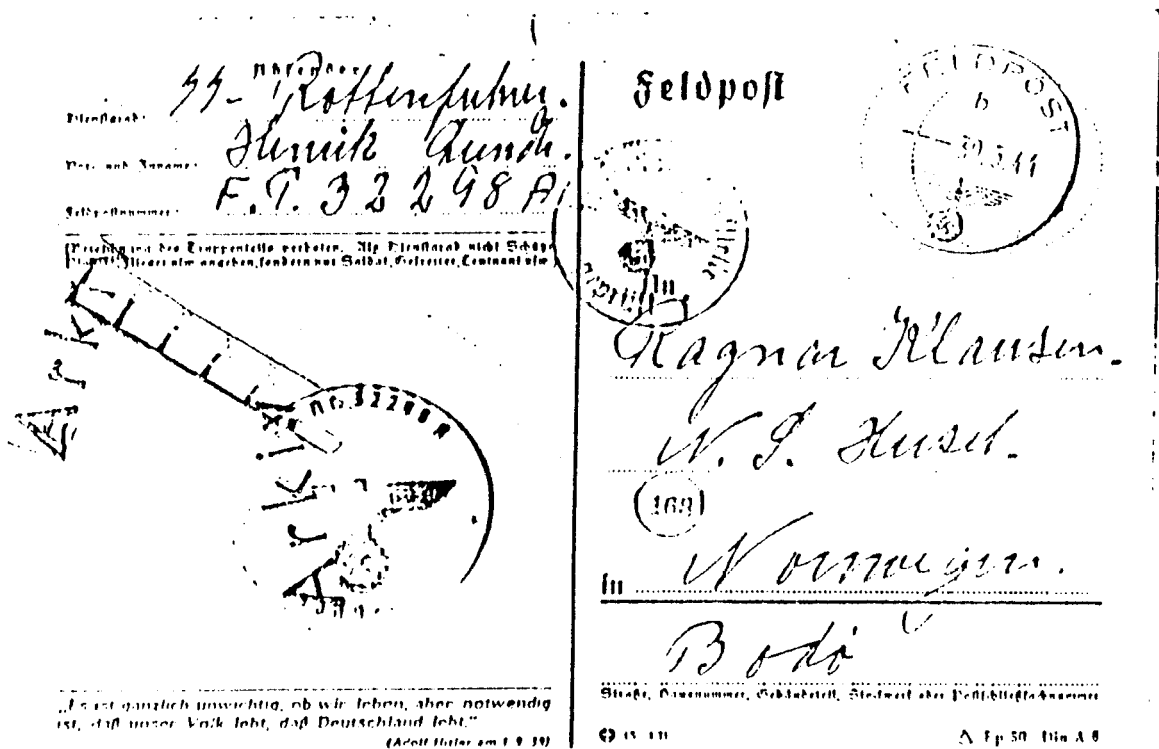 Absender
SS-Rottenfuhrer.
Dienstgrad:
Henrik Lund.
Vor- und Zuname:
F.P. 32298 A
Feldpostnummer:
des Truppenteils verboten. Als Dienstgrad nicht
angeben, sondern nur Soldat, Gefreiter, Leutnant usw.
Arkiv
Nr. 32298A
Arkiv
„Es ist gänzlich unwichtig, ob wir leben, aber notwendig
ist, daß unser Volk lebt, daß Deutschland lebt.“
(Adolf Hitler am 1. 9. 39)
Feldpost
FELDPOST
b
An
Ragnar Klausen.
N. S. Huset.
In Norwegen.
Bodö
Straße, Hausnummer, Gebäudeteil, Stockwerk oder Postschließfachnummer
Fp 50 Din A 6